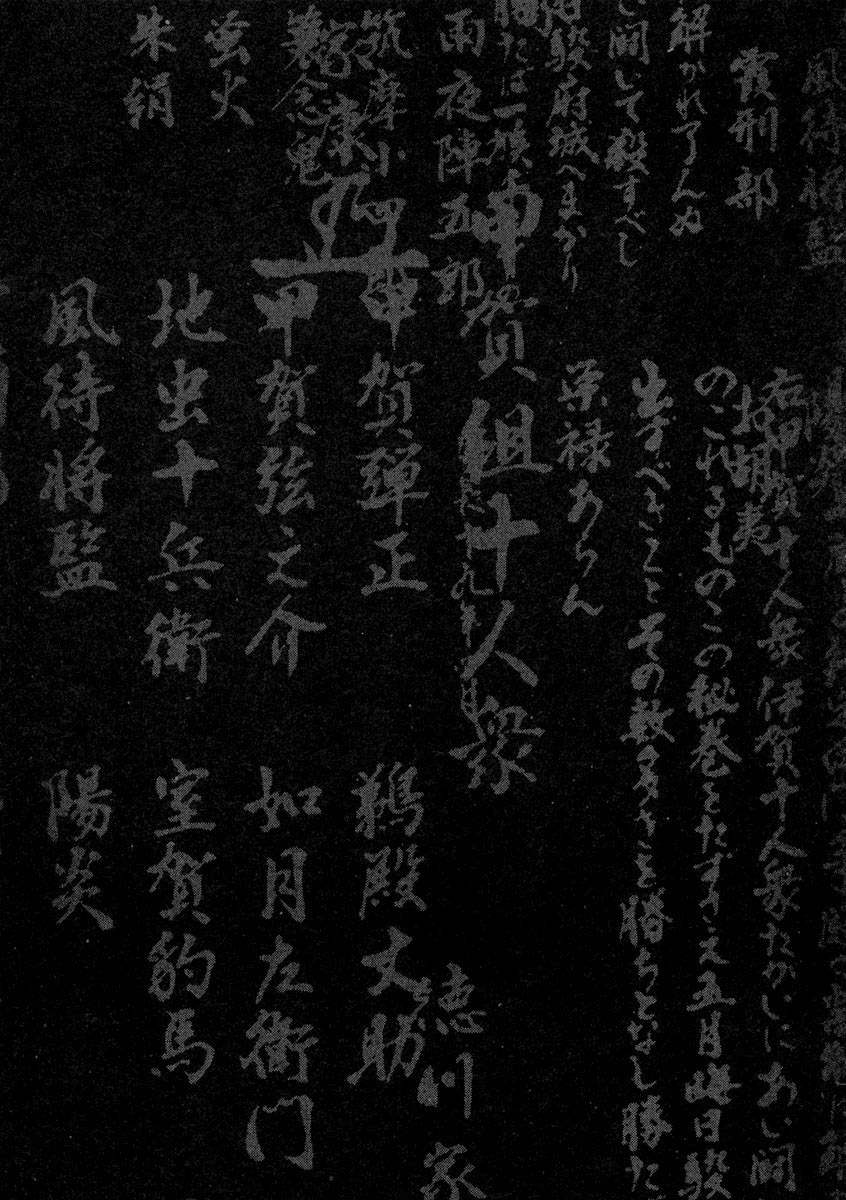 風待将監
霞刑部
解かれ了んぬ
い闘いて殺すべし
駿府城へまかり
勝たば一族
雨夜陣五郎
筑摩小四郎
蓑念鬼
螢火
朱絹
右甲賀十人衆伊賀十人衆たがいにあい闘
のこれるものこの秘巻をたずさえ五月晦日駿
出ずべきことその数多きを勝ちとなし勝た
栄禄あらん
甲賀組十人衆
甲賀弾正
甲賀弦之介
地虫十兵衛
風待将監
鵜殿丈助
如月左衛門
室賀豹馬
陽炎
徳川家